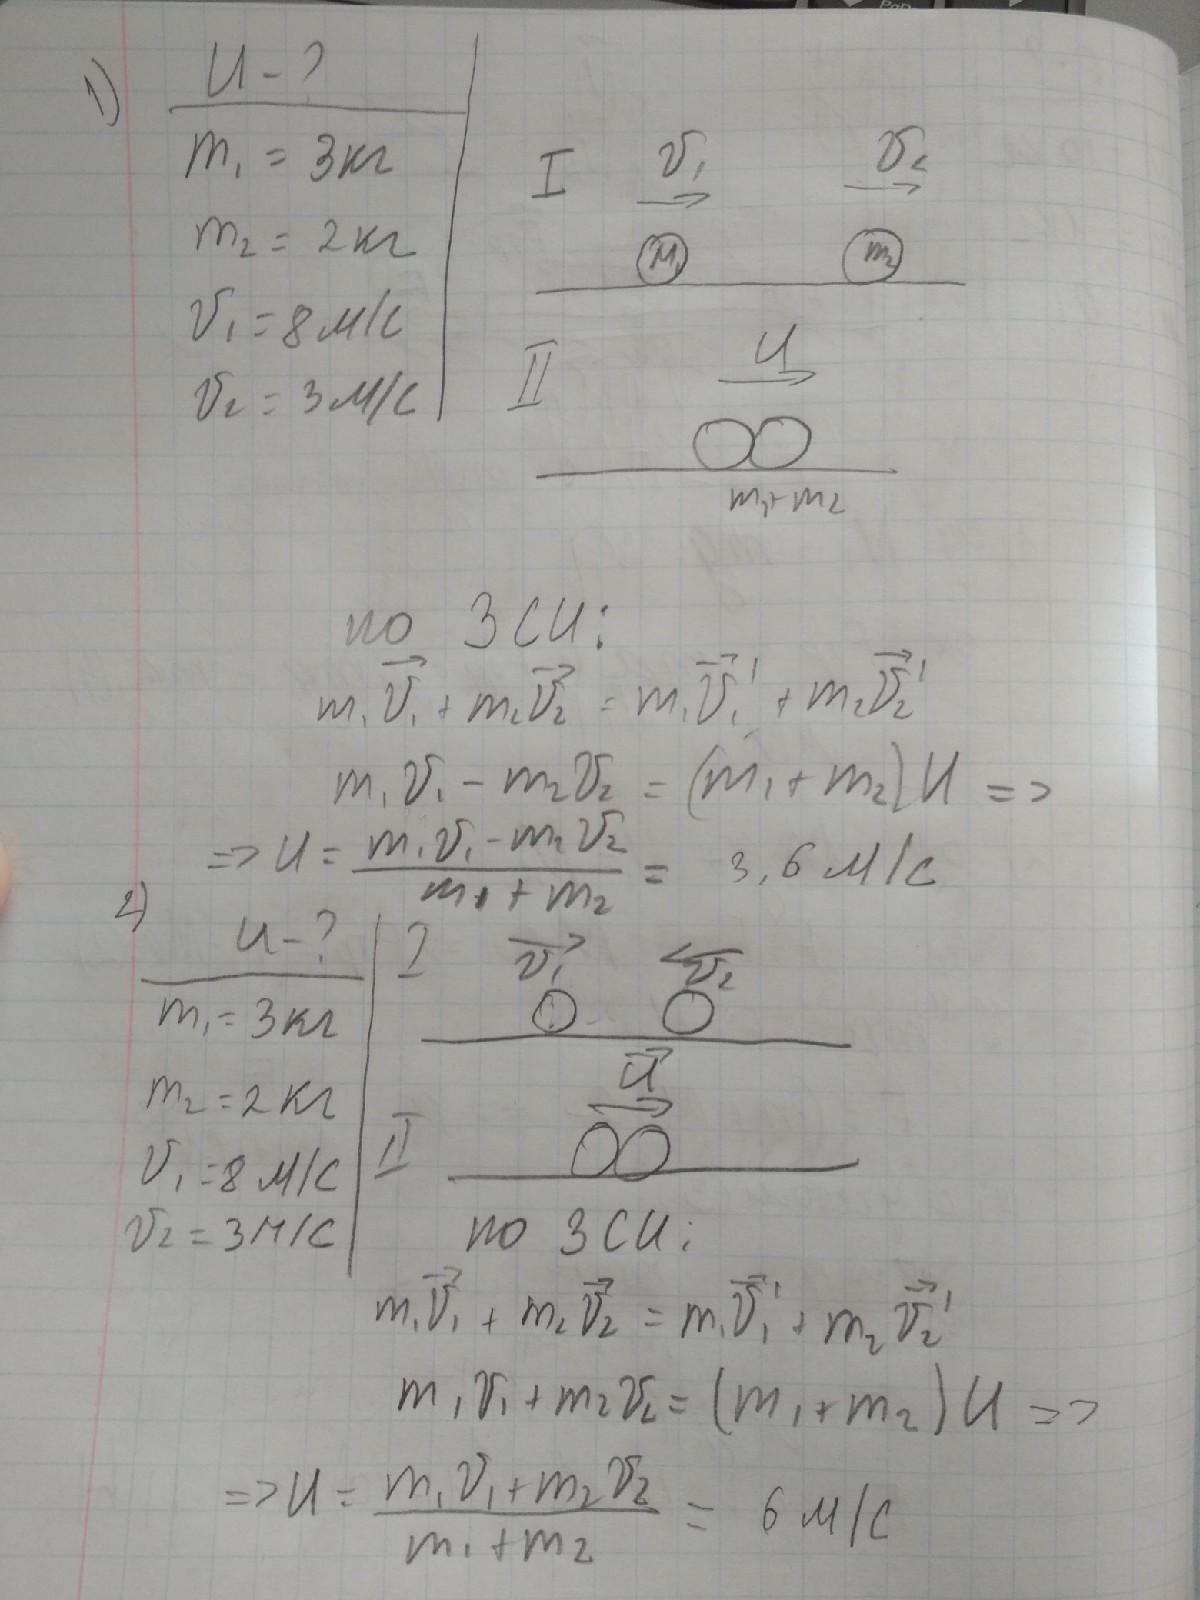 1)
U - ?
m₁ = 3кг
m₂ = 2кг
v₁ = 8 м/с
v₂ = 3 м/с
I v₁ v₂
M₁ m₂
II U
m₁+m₂
по ЗСИ:
m₁v⃗₁ + m₂v⃗₂ = m₁v⃗₁' + m₂v⃗₂'
m₁v₁ - m₂v₂ = (m₁ + m₂)U =>
=> U = (m₁v₁ - m₂v₂)/(m₁ + m₂) = 3,6 м/с
2)
U - ?
m₁ = 3кг
m₂ = 2кг
v₁ = 8 м/с
v₂ = 3 м/с
I v⃗₁ v⃗₂
II U⃗
по ЗСИ:
m₁v⃗₁ + m₂v⃗₂ = m₁v⃗₁' + m₂v⃗₂'
m₁v₁ + m₂v₂ = (m₁ + m₂)U =>
=> U = (m₁v₁ + m₂v₂)/(m₁ + m₂) = 6 м/с